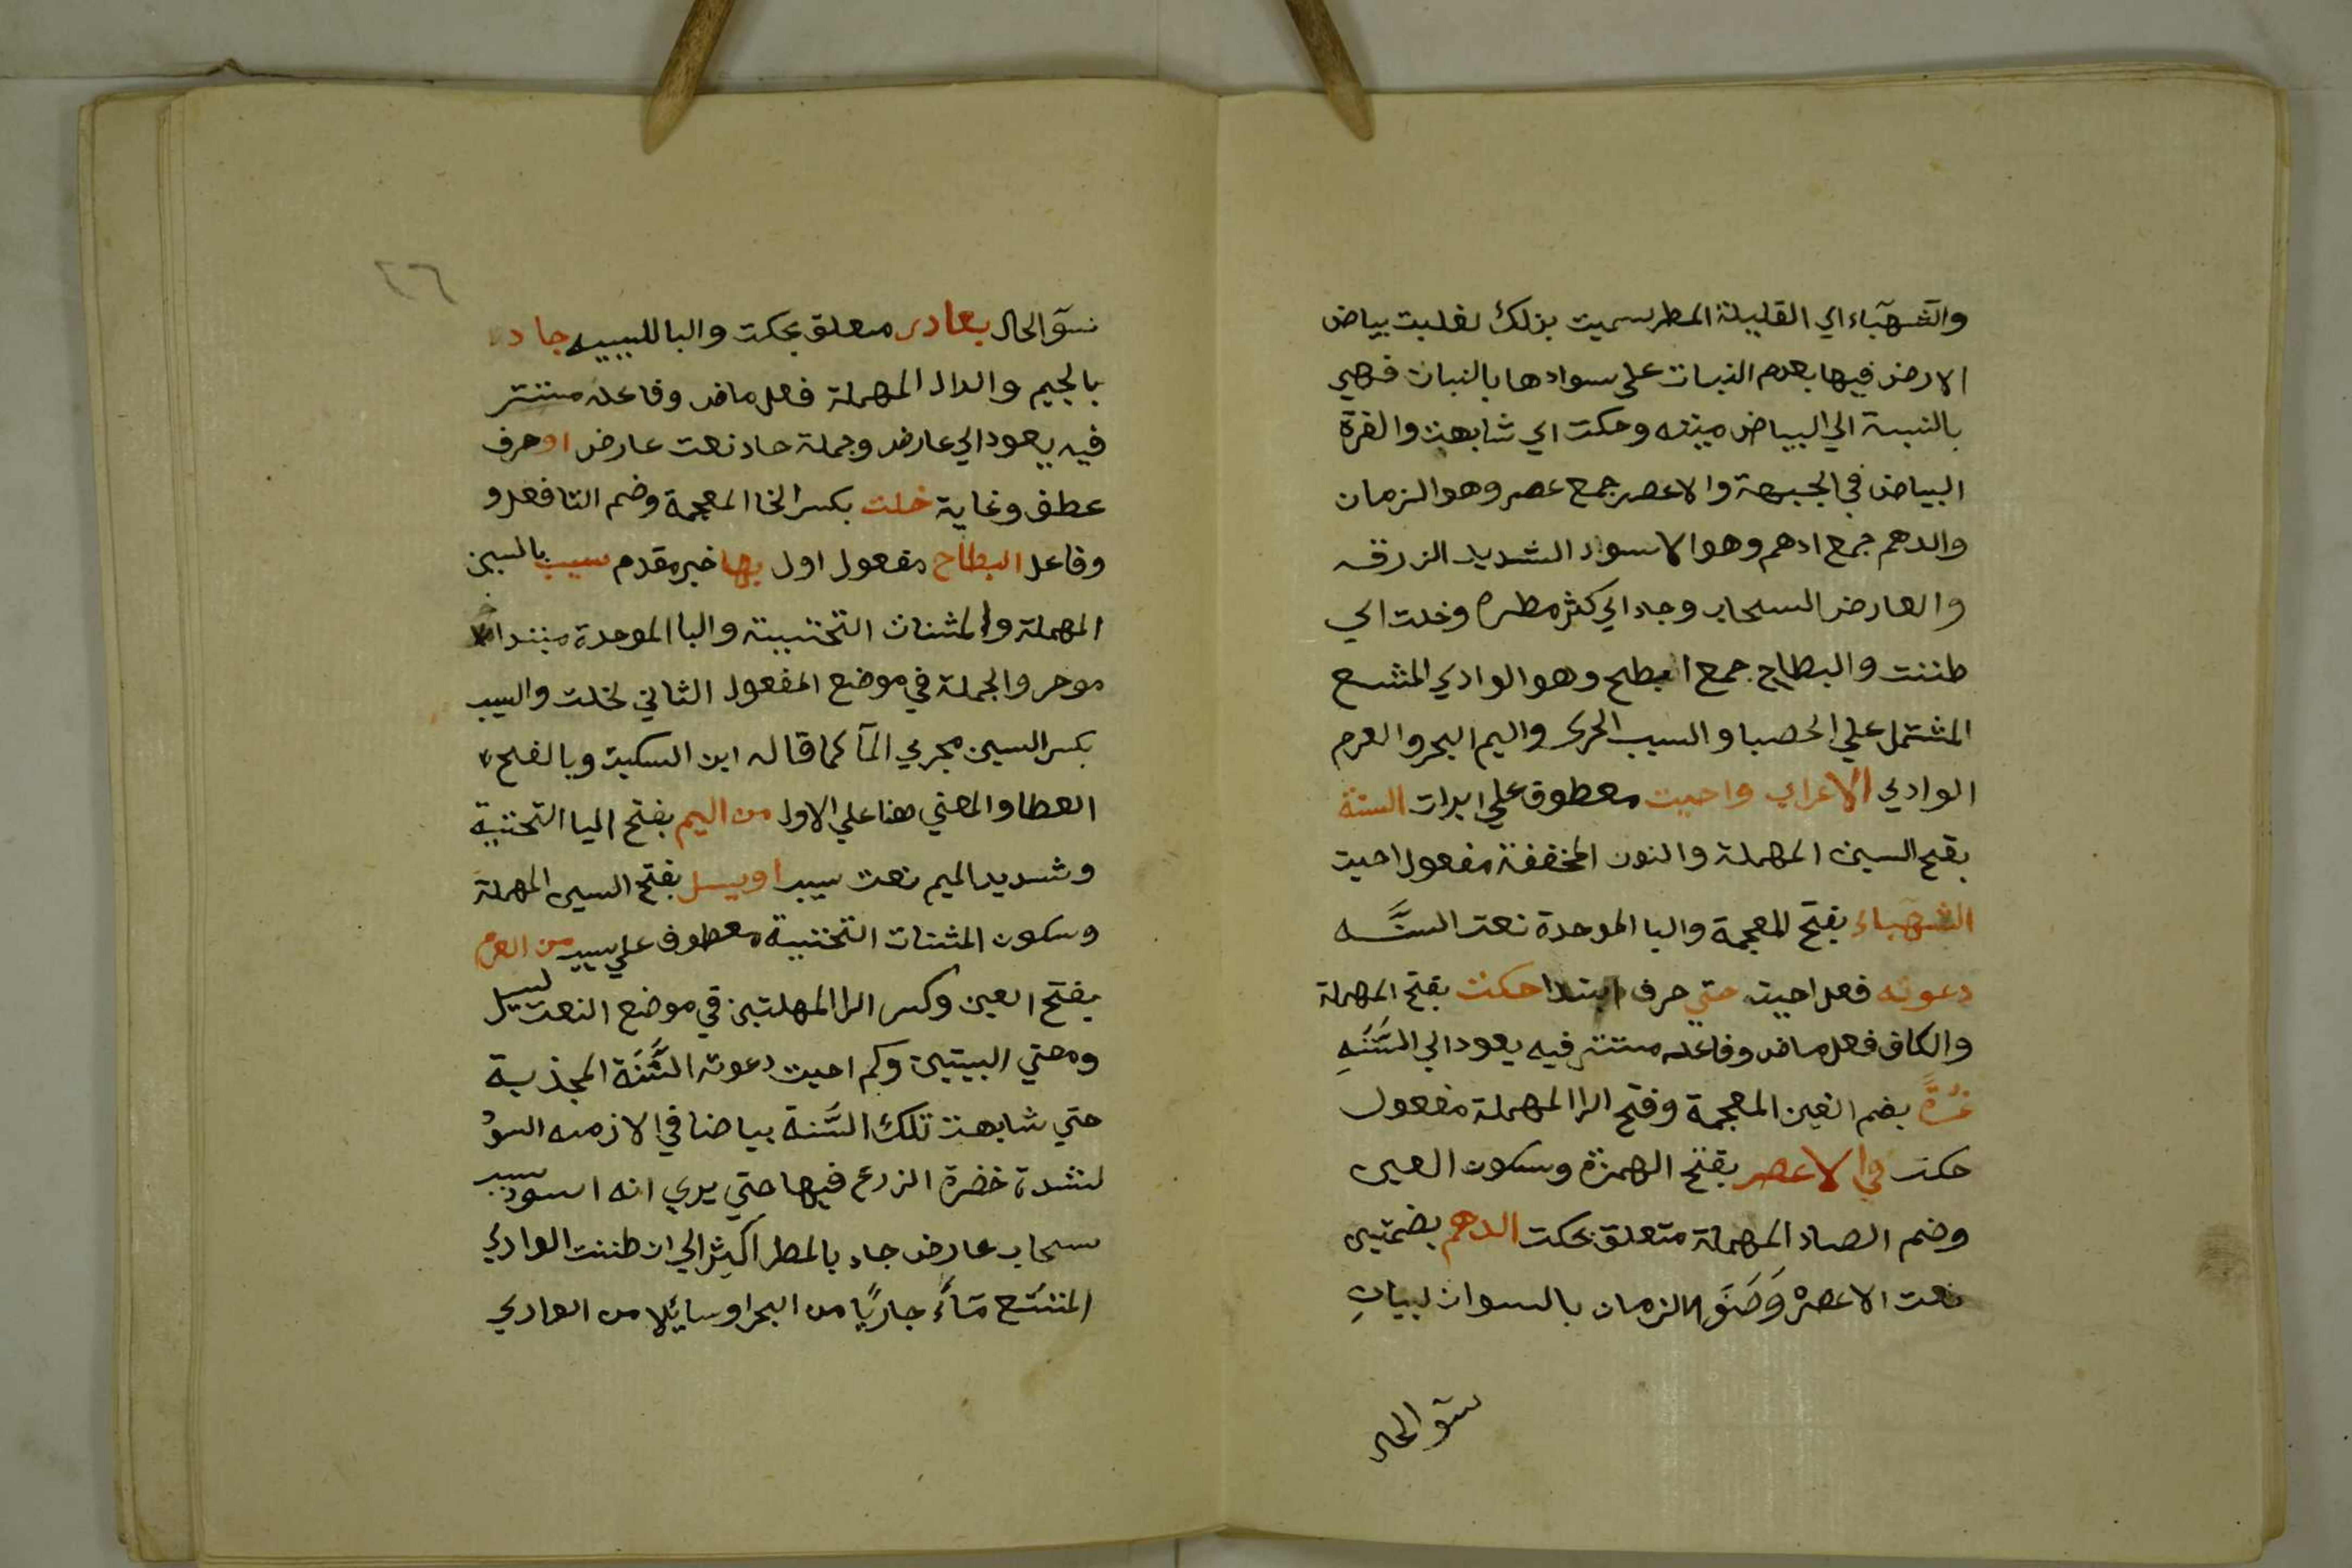 والشهبآء اي القليلة المطر سميت بذلك لغلبت بياض
الارض فيها بعدم النبات علي سوادها بالنبات فهي
بالنسبة الي البياض ميته وحكت اي شابهت والغرة
البياض في الجبهة والاعصر جمع عصر وهو الزمان
والدهم جمع ادهم وهو الاسواد الشديد الزرقه
والعارض السحاب وجاد اي كثر مطره وخلت اي
ظننت والبطاح جمع ابطح وهو الوادي المتسع
المشتمل علي الحصبا والسيب الجري واليم البحر والعرم
الوادي الاعراب واحيت معطوق علي ابرات السنة
بفتح السين المهملة والنون المخففة مفعول احيت
الشهباء بفتح المعجمة والبا الموحدة نعت السَّنه
دعوته فعل احيت حتي حرف ابتدا حكت بفتح المهملة
والكاف فعل ماض وفاعله مستتر فيه يعود الي السَّنَهِ
غُرَّةً بضم الغين المعجمة وفتح الرا المهملة مفعول
حكت في الاعصر بفتح الهمزة وسكون العين
وضم الصاد المهملة متعلق بحكت الدهم بضمتين
نعت الاعصر وَصَفَ الزمان بالسواد لبيان
سؤ الحال
٢٦
سؤ الحال بعارض متعلق بحكت والبا للسببيه جاد
بالجيم والدال المهملة فعل ماض وفاعله مستتر
فيه يعود الي عارض وجملة جاد نعت عارض او حرف
عطف وغاية خلت بكسر الخا المعجمة وضم التا فعل و
وفاعل البطاح مفعول اول بها خبر مقدم سيب بالسين
المهملة والمثنات التحتيية والبا الموحدة مبتدا
موخر والجملة في موضع المفعول الثاني لخلت والسيب
بكسر السين مجري المآ كما قاله ابن السكيت وبالفتح
العطا والمعني هنا علي الاول من اليم بفتح اليا التحتية
وشديد الميم نعت سيب او يسل بفتح السين المهملة
وسكون المثنات التحتية معطوف علي سيب من العرم
بفتح العين وكسر الرا المهملتين في موضع النعت لسيل
ومعني البيتين وكم احيت دعوته السَّنَة المجذبة
حتي شابهت تلك السَّنة بياضا في الازمنه السوُ
لشدة خضرة الزرع فيها حتي يري انه اسود بسبب
سحاب عارض جاد بالمطر اكثر الي ان ظننت الوادي
المتسع مَآءً جاريًا من البحر او سائلا من الوادي